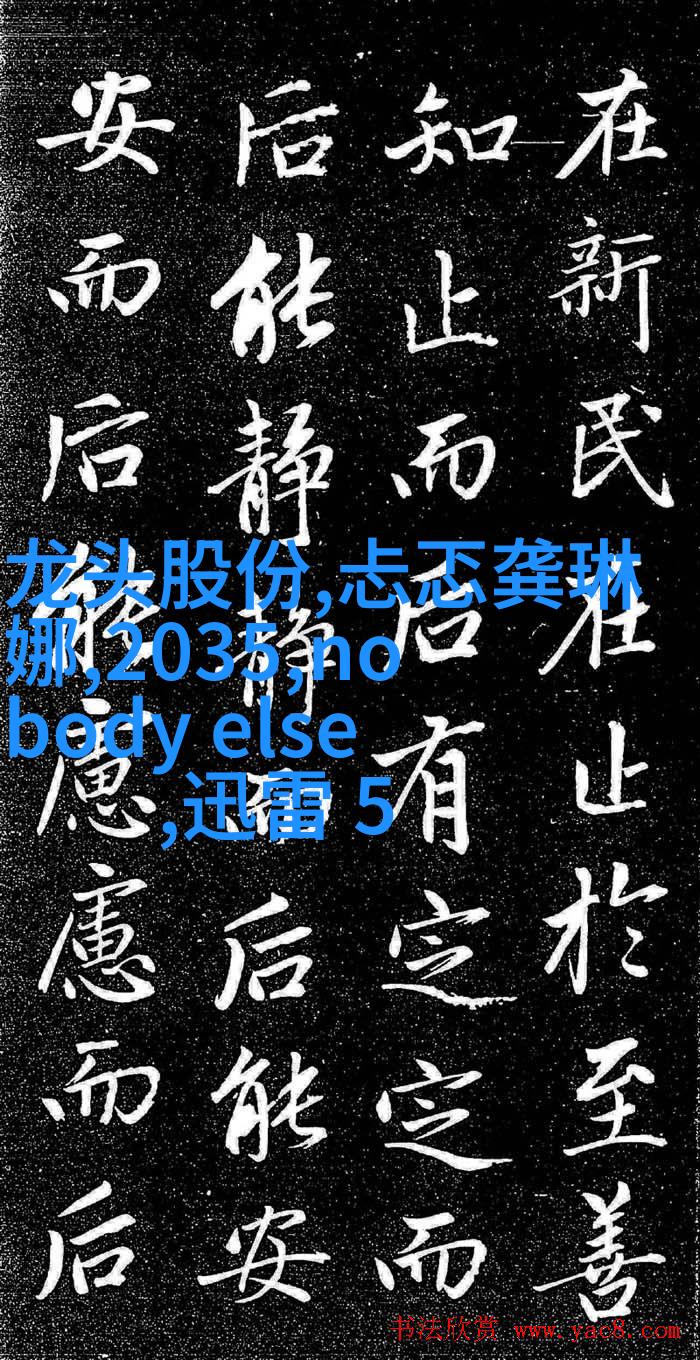 在新民在止於至善
知止而后有定定而
后能静静而后能安
安而后能慮慮而后
龙头股份,忐忑龚琳
娜,2035,no
body else
,迅雷 5
书法欣赏 www.yac8.com